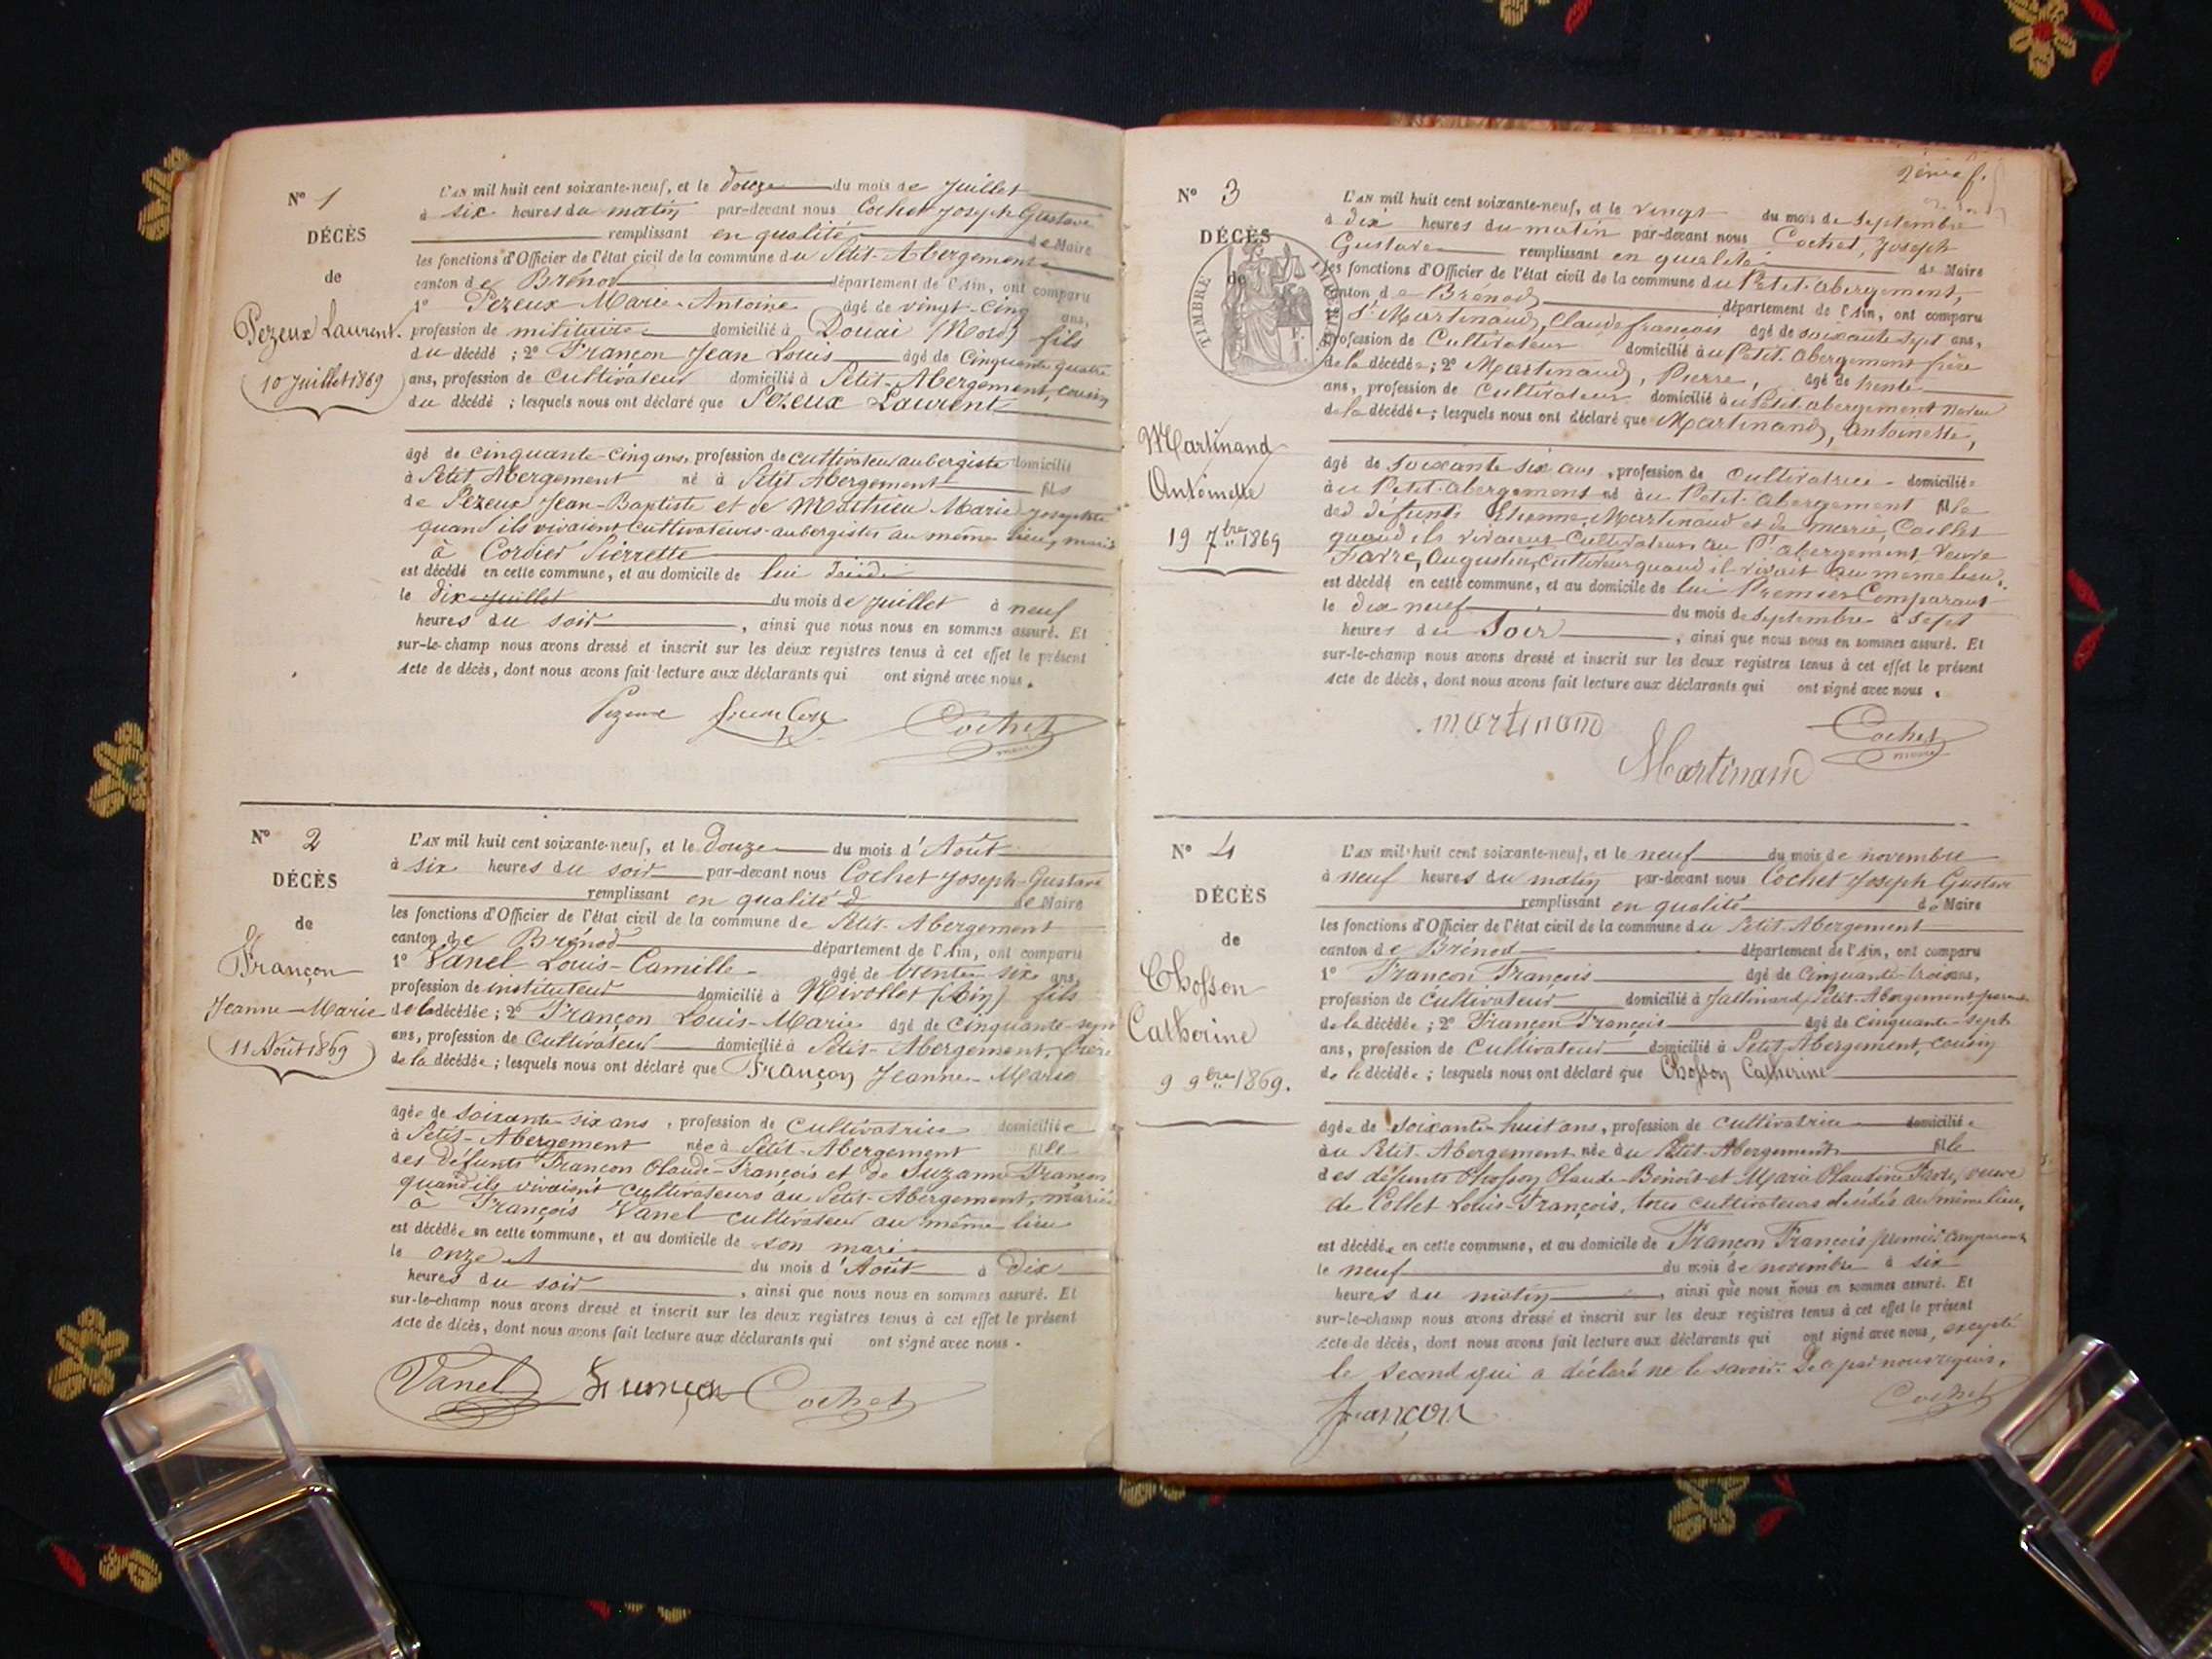 N° 1
DÉCÈS
de
Pezeux Laurent.
10 Juillet 1869
L'AN mil huit cent soixante-neuf, et le douze du mois de Juillet
à six heures du matin par-devant nous Cochet Joseph Gustave
remplissant en qualité de Maire
les fonctions d'Officier de l'état civil de la commune du Petit-Abergement
canton de Brénod département de l'Ain, ont comparu
1° Pezeux Marie-Antoine âgé de vingt-cinq ans,
profession de militaire domicilié à Douai (Nord) fils
du décédé ; 2° Françon Jean Louis âgé de Cinquante quatre
ans, profession de Cultivateur domicilié à Petit-Abergement, cousin
du décédé ; lesquels nous ont déclaré que Pezeux Laurent
âgé de cinquante-cinq ans, profession de cultivateur aubergiste domicilié
à Petit Abergement né à Petit Abergement fils
de Pezeux Jean-Baptiste et de Mathieu Marie Josephte
quand ils vivaient Cultivateurs-aubergistes au même lieu, marié
à Cordier Pierrette
est décédé en cette commune, et au domicile de lui
le dix juillet du mois de Juillet à neuf
heures du soir, ainsi que nous nous en sommes assuré. Et
sur-le-champ nous avons dressé et inscrit sur les deux registres tenus à cet effet le présent
Acte de décès, dont nous avons fait lecture aux déclarants qui ont signé avec nous.
Pezeux Cochet
maire
N° 2
DÉCÈS
de
Françon
Jeanne-Marie
11 Août 1869
L'AN mil huit cent soixante-neuf, et le Douze du mois d'Août
à six heures du soir par-devant nous Cochet Joseph-Gustave
remplissant en qualité d de Maire
les fonctions d'Officier de l'état civil de la commune de Petit-Abergement
canton de Brénod département de l'Ain, ont comparu
1° Vanel Louis-Camille âgé de trente six ans,
profession de instituteur domicilié à Nivollet (Ain) fils
de la décédée ; 2° Françon Louis-Marie âgé de cinquante-sept
ans, profession de Cultivateur domicilié à Petit-Abergement, frère
de la décédée ; lesquels nous ont déclaré que Françon Jeanne-Marie
âgée de soixante six ans, profession de Cultivatrice domiciliée
à Petit-Abergement née à Petit-Abergement fille
des défunts Françon Claude-François et de Suzanne Françon
quand ils vivaient cultivateurs au Petit-Abergement, mariée
à François Vanel cultivateur au même lieu
est décédée en cette commune, et au domicile de son mari
le onze du mois d'Août à Dix
heures du soir, ainsi que nous nous en sommes assuré. Et
sur-le-champ nous avons dressé et inscrit sur les deux registres tenus à cet effet le présent
Acte de décès, dont nous avons fait lecture aux déclarants qui ont signé avec nous.
Vanel Françon Cochet
2ème f.
N° 3
DÉCÈS
de
TIMBRE IMPERIAL
Martinand
Antoinette
19 7bre 1869
L'AN mil huit cent soixante-neuf, et le vingt du mois de Septembre
à dix heures du matin par-devant nous Cochet, Joseph
Gustave remplissant en qualité de Maire
les fonctions d'Officier de l'état civil de la commune du Petit-abergement,
canton de Brénod département de l'Ain, ont comparu
1° Martinand, Claude françois âgé de soixante sept ans,
profession de Cultivateur domicilié au Petit-abergement frère
de la décédée ; 2° Martinand, Pierre, âgé de trente
ans, profession de Cultivateur domicilié au Petit-abergement neveu
de la décédée ; lesquels nous ont déclaré que Martinand, Antoinette,
âgé de soixante six ans, profession de Cultivatrice domiciliée
au Petit-abergement né au Petit-abergement fille
des défunts Etienne Martinaud et de marie, Caillet
quand ils vivaient Cultivateurs au Pt abergement Veuve
Favre, Augustin, Cultivateur quand il vivait au même lieu.
est décédé en cette commune, et au domicile de lui Premier Comparant
le dix neuf du mois de Septembre à Sept
heures du Soir, ainsi que nous nous en sommes assuré. Et
sur-le-champ nous avons dressé et inscrit sur les deux registres tenus à cet effet le présent
Acte de décès, dont nous avons fait lecture aux déclarants qui ont signé avec nous.
martinand Cochet
maire
Martinand
N° 4
DÉCÈS
de
Chosson
Catherine
9 9bre 1869.
L'AN mil huit cent soixante-neuf, et le neuf du mois de novembre
à neuf heures du matin par-devant nous Cochet Joseph Gustave
remplissant en qualité de Maire
les fonctions d'Officier de l'état civil de la commune du Petit-Abergement
canton de Brénod département de l'Ain, ont comparu
1° Françon François âgé de Cinquante-trois ans,
profession de Cultivateur domicilié à Jallinard, Petit-Abergement, parent
de la décédée ; 2° Françon François âgé de cinquante-sept
ans, profession de Cultivateur domicilié à Petit Abergement, cousin
de la décédée ; lesquels nous ont déclaré que Chosson Catherine
âgée de soixante-huit ans, profession de cultivatrice domiciliée
au Petit-Abergement née au Petit-Abergement fille
des défunts Chosson Claude-Benoit et Marie Claudine Favre, veuve
de Collet Louis-François, tous cultivateurs décédés au même lieu,
est décédée en cette commune, et au domicile de Françon François premier Comparant
le neuf du mois de novembre à six
heures du matin, ainsi que nous nous en sommes assuré. Et
sur-le-champ nous avons dressé et inscrit sur les deux registres tenus à cet effet le présent
Acte de décès, dont nous avons fait lecture aux déclarants qui ont signé avec nous, excepté
le second qui a déclaré ne le savoir. De ce par nous requis.
françon Cochet